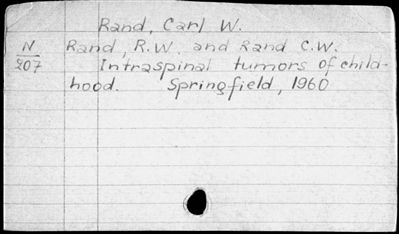 Rand, Carl W.
N Rand, R.W. and Rand C.W.
207 Intraspinal tumors of child-
hood. Springfield, 1960